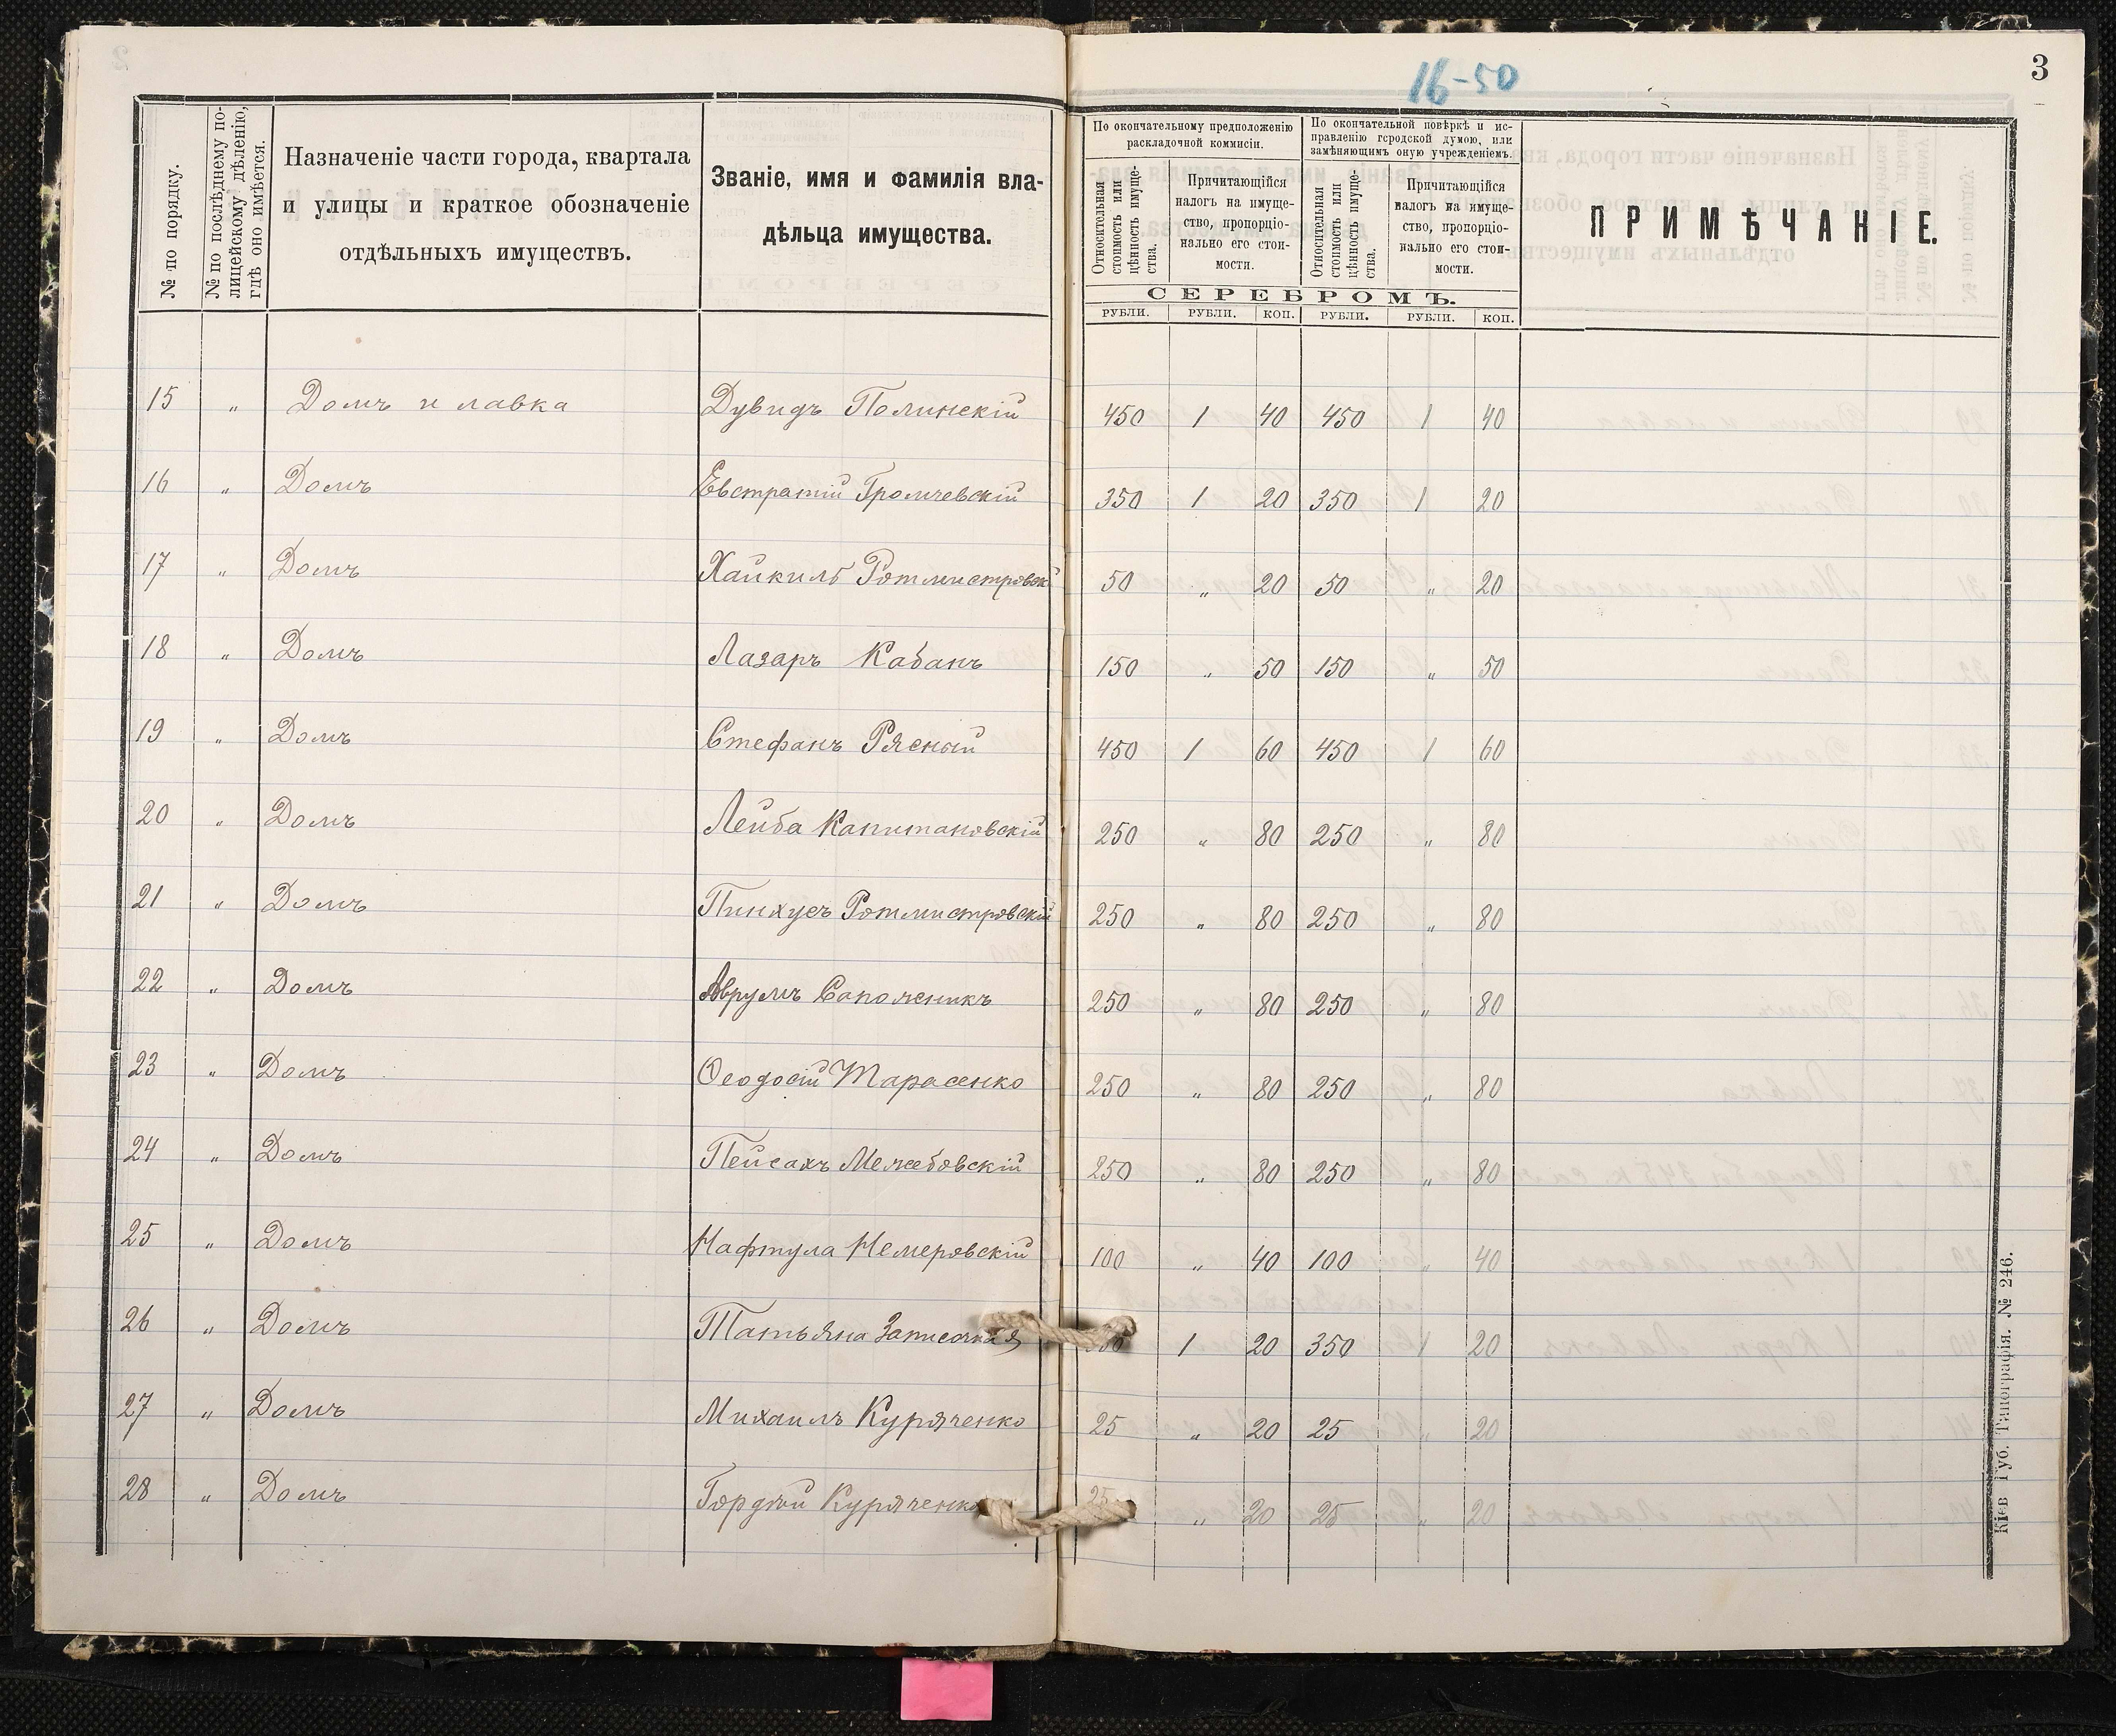 16-50
3
№ по порядку.
№ по послѣднему по-
лицейскому дѣленію,
гдѣ оно имѣется.
Назначеніе части города, квартала
и улицы и краткое обозначеніе
отдѣльныхъ имуществъ.
Званіе, имя и фамилія вла-
дѣльца имущества.
По окончательному предположенію
раскладочной коммисіи.
По окончательной повѣркѣ и ис-
правленію городской думою, или
замѣняющимъ оную учрежденіемъ.
Относительная
стоимость или
цѣнность имуще-
ства.
Причитающійся
налогъ на имуще-
ство, пропорціо-
нально его стои-
мости.
Относительная
стоимость или
цѣнность имуще-
ства.
Причитающійся
налогъ на имуще-
ство, пропорціо-
нально его стои-
мости.
ПРИМѢЧАНІЕ.
СЕРЕБРОМЪ.
РУБЛИ. РУБЛИ. КОП. РУБЛИ. РУБЛИ. КОП.
15 „ Домъ и лавка Дувидъ Полинскій 450 1 40 450 1 40
16 „ Домъ Евстратій Громчевскій 350 1 20 350 1 20
17 „ Домъ Хайкиль Ротмистровск 50 „ 20 50 „ 20
18 „ Домъ Лазаръ Кабанъ 150 „ 50 150 „ 50
19 „ Домъ Стефанъ Рясный 450 1 60 450 1 60
20 „ Домъ Лейба Капитановскій 250 „ 80 250 „ 80
21 „ Домъ Пинхусъ Ротмистровскій 250 „ 80 250 „ 80
22 „ Домъ Аврумъ Сапожникъ 250 „ 80 250 „ 80
23 „ Домъ Ѳеодосій Тарасенко 250 „ 80 250 „ 80
24 „ Домъ Пейсахъ Межебовскій 250 „ 80 250 „ 80
25 „ Домъ Нафтула Немеровскій 100 „ 40 100 „ 40
26 „ Домъ Татьяна 1 20 350 1 20
27 „ Домъ Михаилъ Куряченко 25 „ 20 25 „ 20
28 „ Домъ Гордѣй Куряченко 25 „ 20 25 „ 20
Кіев Губ. Типографія. № 246.